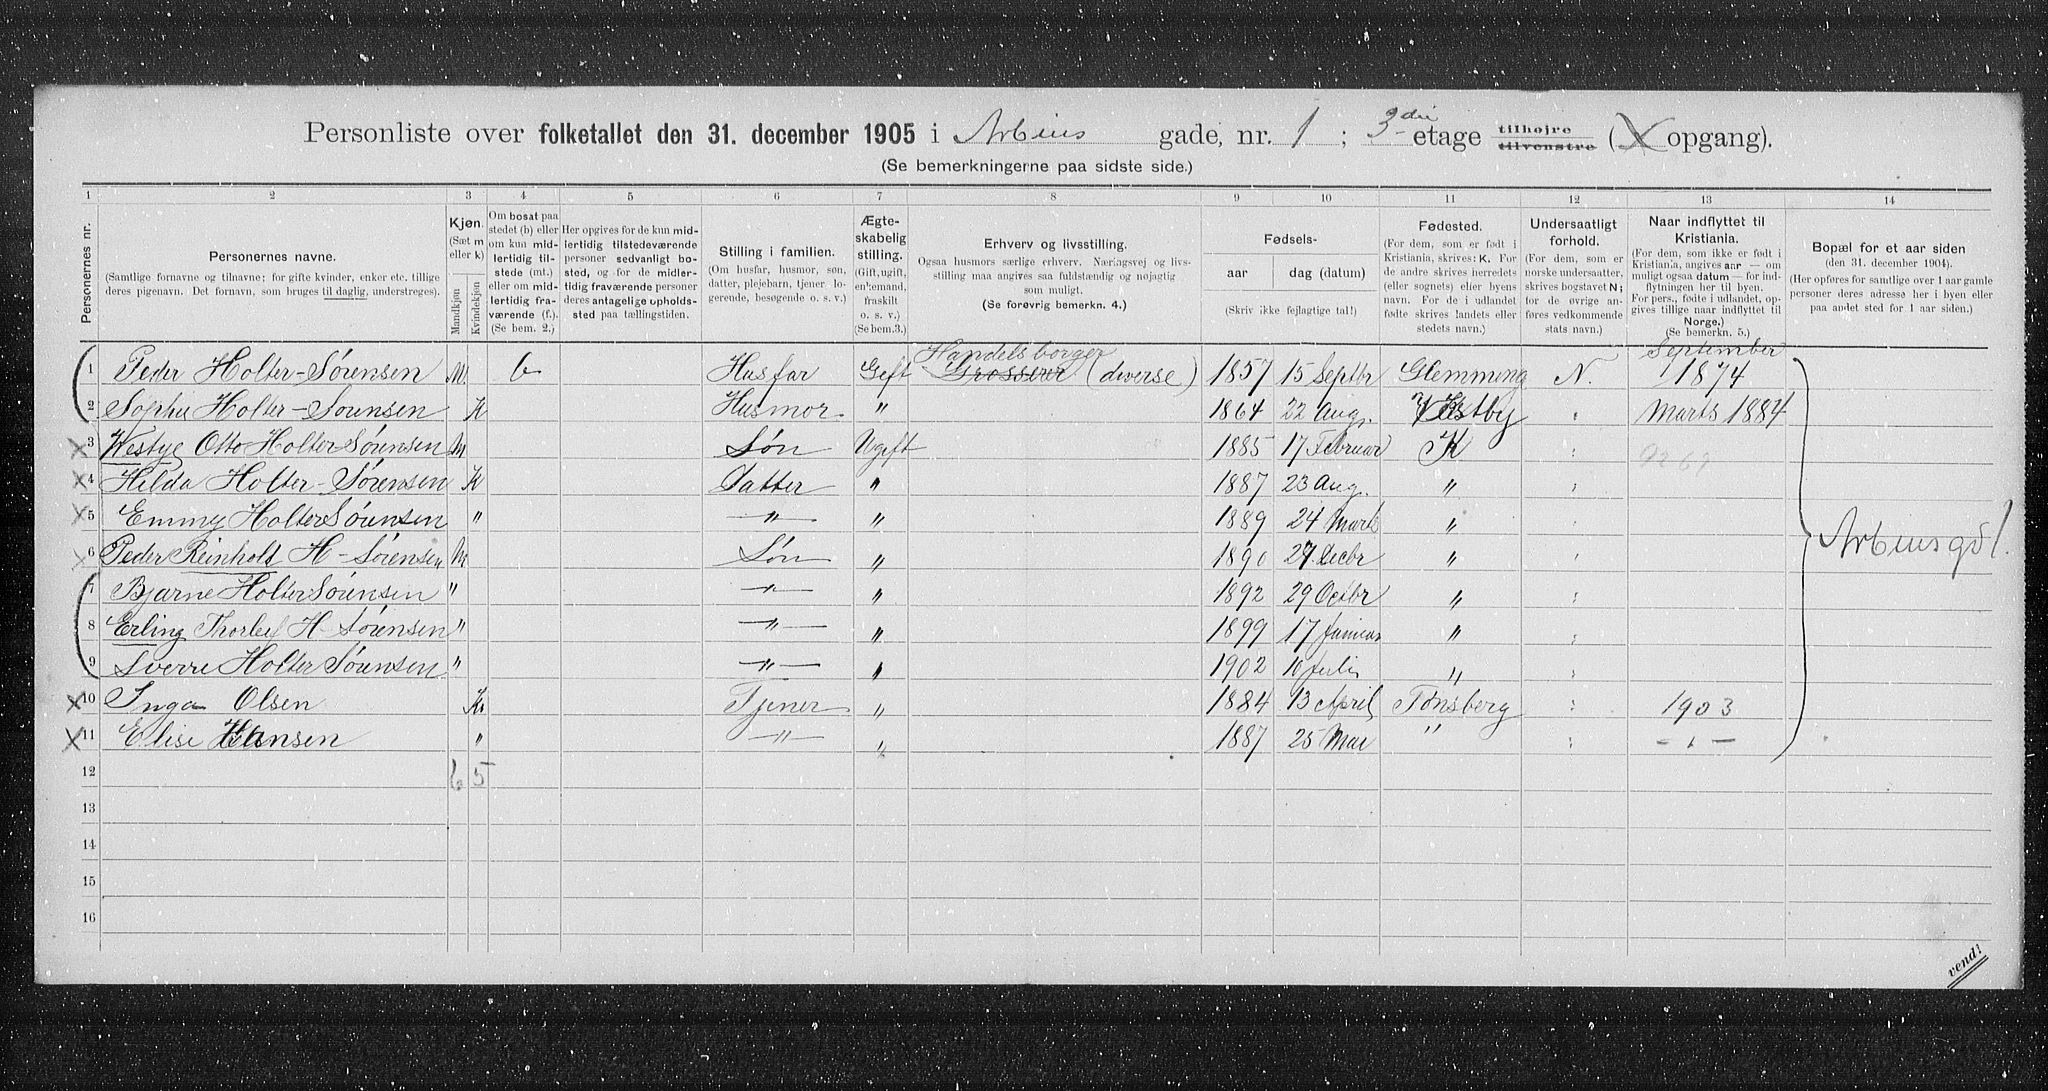 Personliste over folketallet den 31. december 1905 i Arbins gade, nr. 1 ; 3die etage tilhøjre tilvenstre (X opgang).
(Se bemerkningerne paa sidste side.)
1 2 3 4 5 6 7 8 9 10 11 12 13 14
Personernes nr.
Personernes navne.
(Samtlige fornavne og tilnavne; for gifte kvinder, enker etc. tillige deres pigenavn. Det fornavn, som bruges til daglig, understreges).
Kjøn.
(Sæt m eller k)
Mandkjøn
Kvindekjøn
Om bosat paa stedet (b) eller om kun midlertidig tilstede (mt.) eller om midlertidig fraværende (f.). (Se bem. 2,)
Her opgives for de kun midlertidig tilstedeværende personer sedvanligt bosted, og for de midlertidig fraværende personer deres antagelige opholdssted paa tællingstiden.
Stilling i familien.
(Om husfar, husmor, søn, datter, plejebarn, tjener, logerende, besøgende o. s. v.)
Ægteskabelig stilling.
(Gift, ugift, enkemand, fraskilt o. s. v.) (Se bem.3.)
Erhverv og livsstilling.
Ogsaa husmors særlige erhverv. Næringsvej og livsstilling maa angives saa fuldstændig og nøjagtig som muligt.
(Se forøvrig bemerkn. 4.)
Fødsels-
aar dag (datum)
(Skriv ikke fejlagtige tal!)
Fødested.
(For dem, som er født i Kristiania, skrives: K. For de andre skrives herredets (eller sognets) eller byens navn. For de i udlandet fødte skrives landets eller stedets navn.)
Undersaatligt forhold.
(For dem, som er norske undersaatter, skrives bogstavet N; for de øvrige anføres vedkommende stats navn.)
Naar indflyttet til Kristiania.
(For dem, som ikke er født i Kristiania, angives aar — om muligt ogsaa datum — for indflytningen her til byen. For pers., fødte i udlandet, opgives tillige naar indflyttet til Norge.)
(Se bemerkn. 5.)
Bopæl for et aar siden
(den 31. december 1904).
(Her opføres for samtlige over 1 aar gamle personer deres adresse her i byen eller paa andet sted for 1 aar siden.)
1 Peder Holter-Sørensen M. b Husfar Gift Handelsborger Grosserer (diverse) 1857 15 Septbr Glemming N. September 1874
2 Sophie Holter-Sørensen K Husmor " 1864 22 Aug. Vestby " Marts 1884
3 Westye Otto Holter Sørensen M Søn Ugift 1885 17 Februar K "
4 Hilda Holter-Sørensen K Datter " 1887 23 Aug. " "
5 Emmy Holter Sørensen " —"— " 1889 24 Marts " "
Arbinsgd 1.
6 Peder Reinholt H-Sørensen M Søn " 1890 27 Decbr " "
7 Bjarne Holter Sørensen " —"— " 1892 29 Octbr " "
8 Erling Thorleif H-Sørensen " —"— " 1899 17 Januar " "
9 Sverre Holter Sørensen " —"— " 1902 10 Juli " "
10 Inga Olsen K. Tjener " 1884 13 April Tønsberg " 1903
11 Elise Hansen " —"— " 1887 25 Mai " " — " —
12 6 5
13
14
15
16
vend!